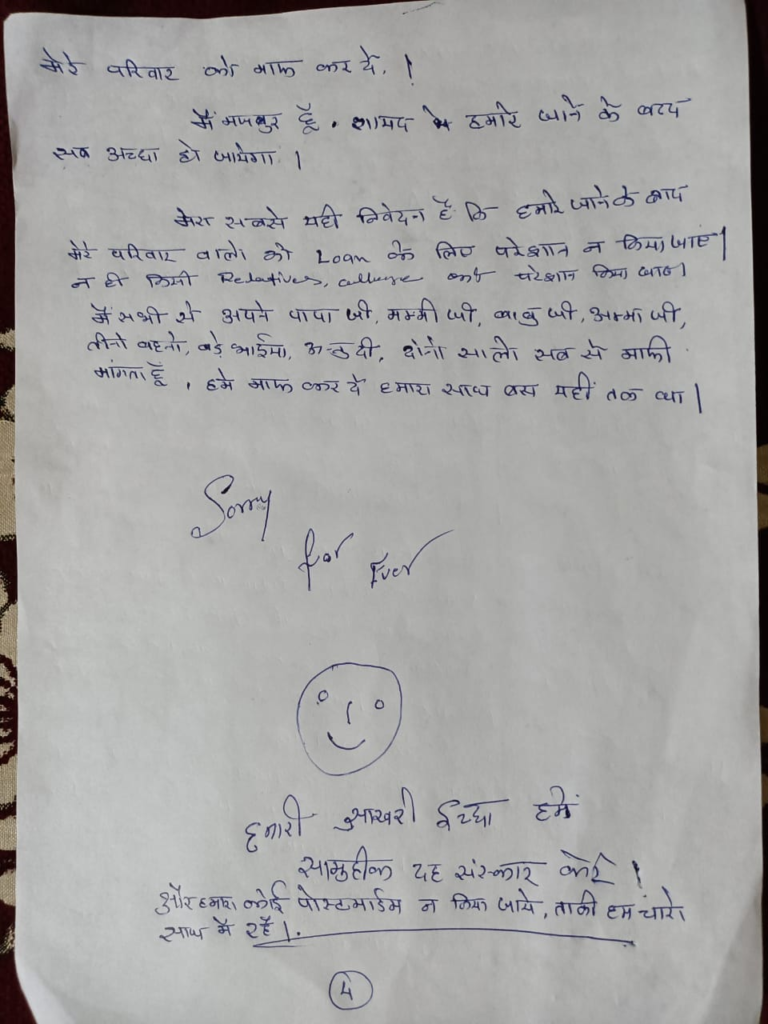 मेरे परिवार को माफ कर दे, !
मैं मजबुर हूँ . शायद हमारे जाने के बाद
सब अच्छा हो जायेगा ।
मेरा सबसे यही निवेदन है कि हमारे जाने के बाद
मेरे परिवार वालो को Loan के लिए परेशान न किया जाए।
न ही किसी Relatives, को परेशान किया जाए।
मैं सभी से अपने पापा जी, मम्मी जी, बाबु जी, अम्मा जी,
तीनो बहनो, बड़े भाईया, दी, दोनो सालो सब से माफी
मांगता हूँ . हमे माफ कर दे हमारा साथ बस यहीं तक था |
Sorry
for
Ever
हमारी आखरी ईच्छा हमें
सामुहीक दह संस्कार करे !
और कोई पोस्टमार्डम न किया जाये, ताकी हम चारो
साथ में रहें ।.
4